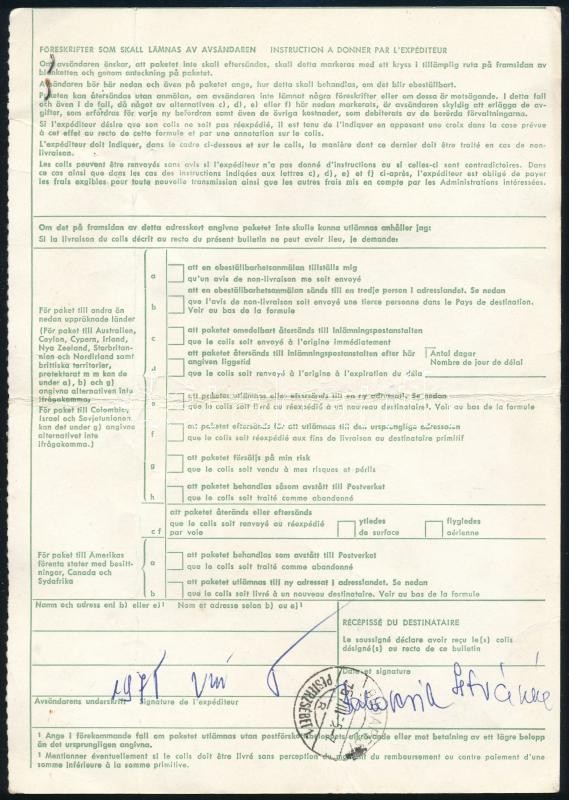 FÖRESKRIFTER SOM SKALL LÄMNAS AV AVSÄNDAREN INSTRUCTION A DONNER PAR L'EXPÉDITEUR
Om avsändaren önskar, att paketet inte skall eftersändas, skall detta markeras med ett kryss i tillämplig ruta på framsidan av
blanketten och genom anteckning på paketet.
Avsändaren bör här nedan och även på paketet ange, hur detta skall behandlas, om det blir obeställbart.
Paketen kan återsändas utan anmälan, om avsändaren inte lämnat några föreskrifter eller om dessa är motsägande. I detta fall
och även i de fall, då något av alternativen c), d), e) eller f) här nedan markerats, är avsändaren skyldig att erlägga de av-
gifter, som erfordras för varje ny befordran samt även de övriga kostnader, som debiterats av de berörda förvaltningarna.
Si l'expéditeur désire que son colis ne soit pas réexpédié, il est tenu de l'indiquer en apposant une croix dans la case prévue
à cet effet au recto de cette formule et par une annotation sur le colis.
L'expéditeur doit indiquer, dans le cadre ci-dessous et sur le colis, la manière dont ce dernier doit être traité en cas de non-
livraison.
Les colis peuvent être renvoyés sans avis si l'expéditeur n'a pas donné d'instructions ou si celles-ci sont contradictoires. Dans
ce cas ainsi que dans les cas des instructions indiquées aux lettres c), d), e) et f) ci-après, l'expéditeur est obligé de payer
les frais exigibles pour toute nouvelle transmission ainsi que les autres frais mis en compte par les Administrations intéressées.
Om det på framsidan av detta adresskort angivna paketet inte skulle kunna utlämnas anhåller jag:
Si la livraison du colis décrit au recto du présent bulletin ne peut avoir lieu, je demande:
För paket till andra än
nedan uppräknade länder
(För paket till Australien,
Ceylon, Cypern, Irland,
Nya Zeeland, Storbritan-
nien och Nordirland samt
brittiska territorier,
protektorat m m kan de
under a), b) och g)
angivna alternativen inte
ifrågakomma.)
För paket till Colombia,
Israel och Sovjetunionen
kan det under g) angivna
alternativet inte
ifrågakomma.)
a att en obeställbarhetsanmälan tillställs mig
qu'un avis de non-livraison me soit envoyé
b att en obeställbarhetsanmälan sänds till en tredje person i adresslandet. Se nedan
que l'avis de non-livraison soit envoyé une tierce personne dans le Pays de destination.
Voir au bas de la formule
c att paketet omedelbart återsänds till inlämningspostanstalten
que le colis soit envoyé à l'origine immédiatement
d att paketet återsänds till inlämningspostanstalten efter här Antal dagar
angiven liggetid Nombre de jour de délai
que le colis soit renvoyé à l'origine à l'expiration du délai
e att paketet utlämnas eller eftersänds till en ny adressat. Se nedan
que le colis soit livré ou réexpédié à un nouveau destinataire¹. Voir au bas de la formule
f att paketet eftersänds för att utlämnas till den ursprunglige adressaten
que le colis soit réexpédié aux fins de livraison au destinataire primitif
g att paketet försäljs på min risk
que le colis soit vendu à mes risques et périls
h att paketet behandlas såsom avstått till Postverket
que le colis soit traité comme abandonné
c f att paketet återänds eller eftersänds
que le colis soit renvoyé ou réexpédié
par voie
ytledes
de surface
flygledes
aérienne
För paket till Amerikas
förenta stater med besitt-
ningar, Canada och
Sydafrika
a att paketet behandlas som avstått till Postverket
que le colis soit traité comme abandonné
b att paketet utlämnas till ny adressat i adresslandet. Se nedan
que le colis soit livré à un nouveau destinataire. Voir au bas de la formule
Namn och adress enl b) eller e)¹ Nom et adresse selon b) ou e)¹
RÉCÉPISSÉ DU DESTINATAIRE
Le soussigné déclare avoir reçu le(s) colis
désigné(s) au recto de ce bulletin
Date et signature
1975 VIII
Istvánné
PESTERZSÉBET
Avsändarens underskrift Signature de l'expéditeur
¹ Ange i förekommande fall om paketet utlämnas utan postförskottsbeloppets utkrävande eller mot betalning av ett lägre belopp
än det ursprungligen angivna.
¹ Mentionner éventuellement si le colis doit être livré sans perception du montant du remboursement ou contre paiement d'une
somme inférieure à la somme primitive.